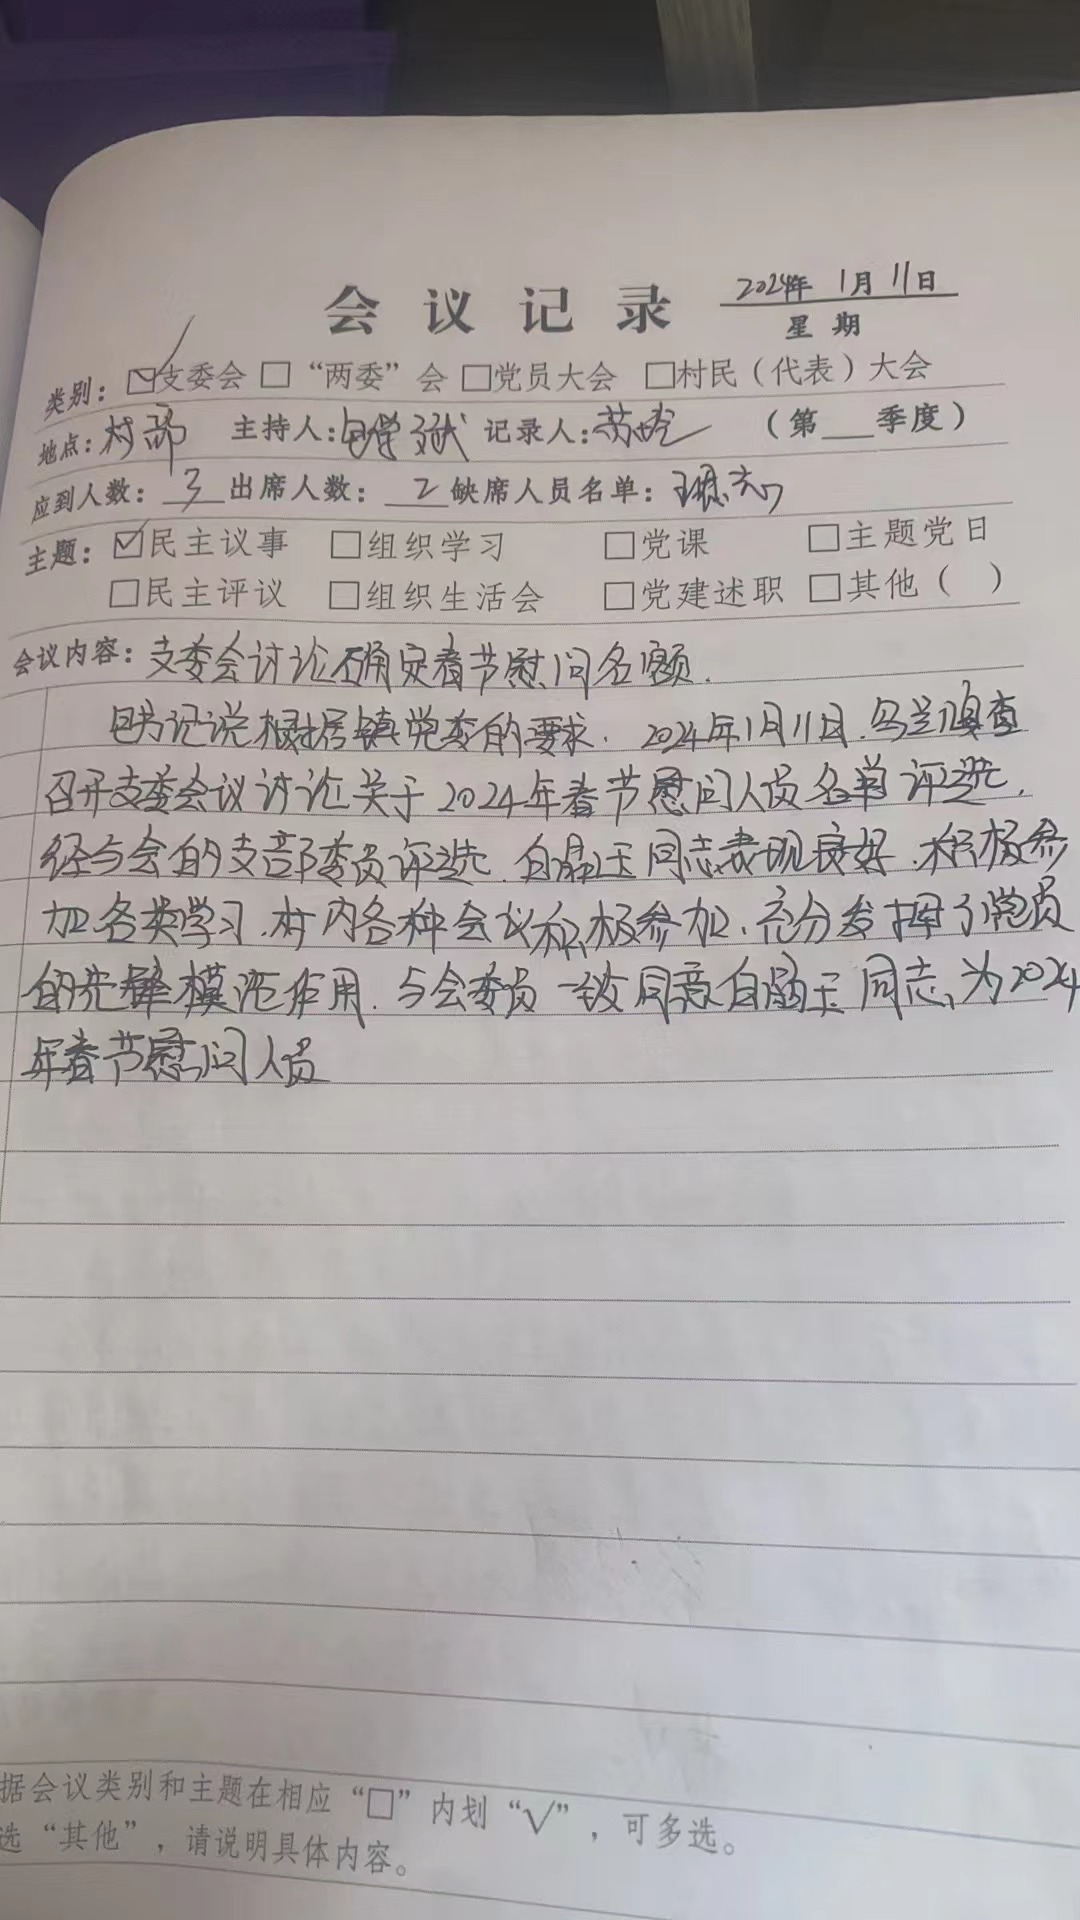 会议记录 2024年1月11日
星期
类别：☑支委会 □“两委”会 □党员大会 □村民（代表）大会
地点：村部 主持人： 记录人： （第___季度）
应到人数：3 出席人数：2 缺席人员名单：
主题：☑民主议事 □组织学习 □党课 □主题党日
□民主评议 □组织生活会 □党建述职 □其他（ ）
会议内容：支委会讨论确定春节慰问名额.
包书记说根据镇党委的要求. 2024年1月11日.乌兰
召开支委会议讨论关于2024年春节慰问人员名单评选,
经与会的支部委员评选.白晶玉同志表现良好.积极参
加各类学习.村内各种会议积极参加、充分发挥了党员
的先锋模范作用.与会委员一致同意白晶玉同志为2024
年春节慰问人员
据会议类别和主题在相应“□”内划“√”，可多选。
选“其他”，请说明具体内容。